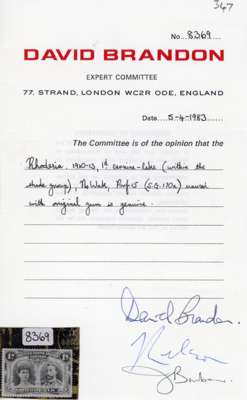 347
No. 8369
DAVID BRANDON
EXPERT COMMITTEE
77, STRAND, LONDON WC2R 0DE, ENGLAND
Date 5-4-1983
The Committee is of the opinion that the
Rhodesia. 1910-13, 1d carmine-lake (within the
shade group), No Wmk, Perf 15 (S.G. 170a) unused
with original gum is genuine.
David Brandon.
8369